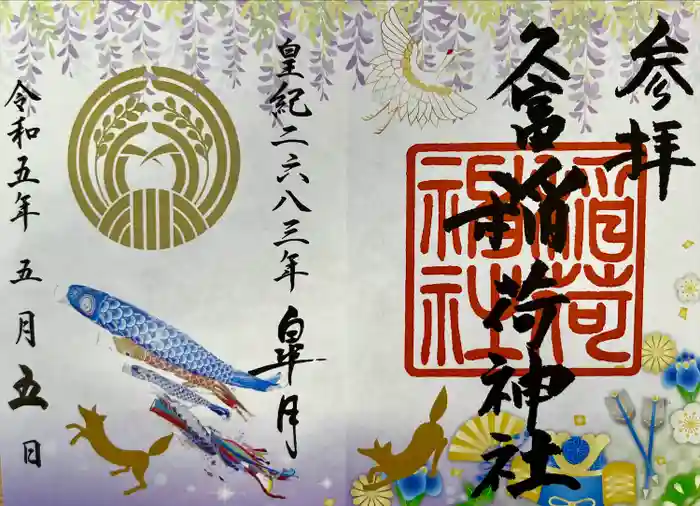 参拝
久富稲荷神社
稲荷
神社
皇紀二六八三年 皐月
令和五年 五月五日